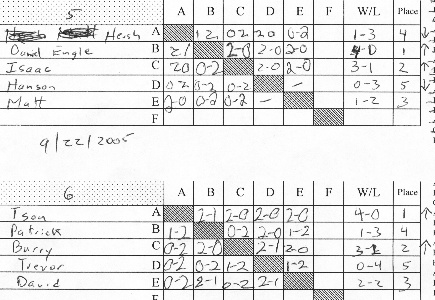 5 A B C D E F W/L Place
Hersh A 1-2 0-2 2-0 0-2 1-3 4
David Engle B 2-1 2-0 2-0 2-0 4-0 1
Isaac C 2-0 0-2 2-0 2-0 3-1 2
Hanson D 0-2 0-2 0-2 - 0-3 5
Matt E 2-0 0-2 0-2 - 1-2 3
F
9/22/2005
6 A B C D E F W/L Place
Tson A 2-1 2-0 2-0 2-0 4-0 1
Patrick B 1-2 0-2 2-0 1-2 1-3 4
Barry C 0-2 2-0 2-1 2-0 2
Trevor D 0-2 0-2 1-2 1-2 0-4 5
David E 0-2 2-1 0-2 2-1 2-2 3
F